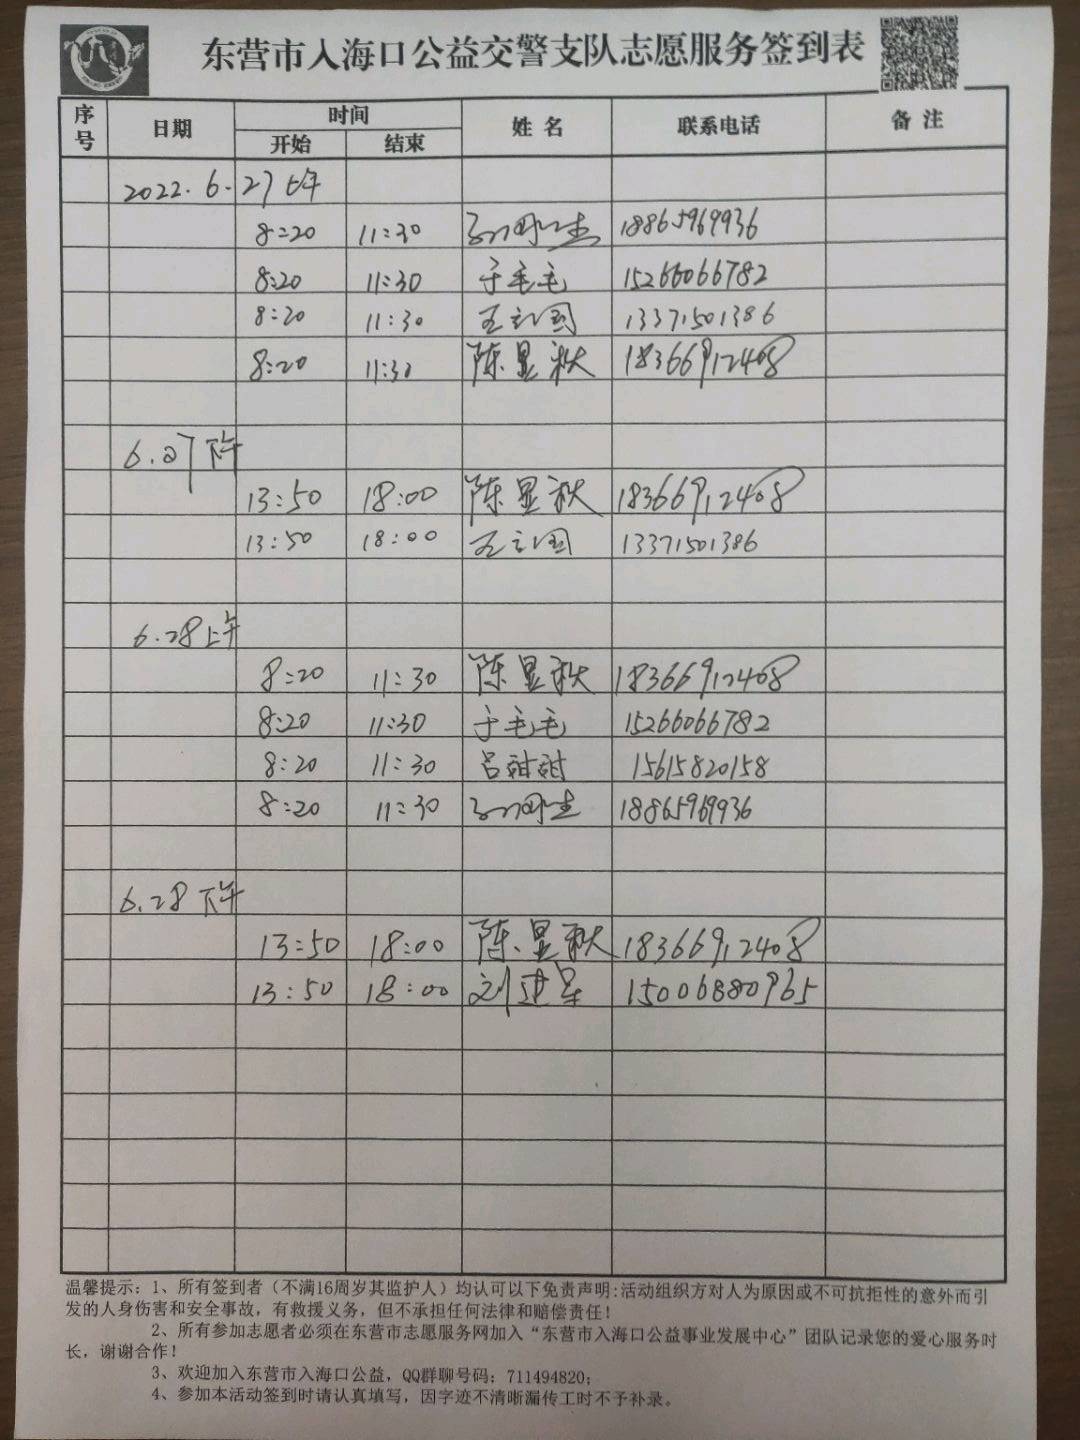 东营市入海口公益交警支队志愿服务签到表
序号 日期 时间 姓名 联系电话 备注
开始 结束
2022.6.27上午
8:20 11:30 18865969936
8:20 11:30 于毛毛 15266066782
8:20 11:30 王立国 13371501386
8:20 11:30 陈显秋 18366912408
6.27下午
13:50 18:00 陈显秋 18366912408
13:50 18:00 王立国 13371501386
6.28上午
8:20 11:30 陈显秋 18366912408
8:20 11:30 于毛毛 15266066782
8:20 11:30 吕甜甜 15615820158
8:20 11:30 18865969936
6.28下午
13:50 18:00 陈显秋 18366912408
13:50 18:00 刘建星 15006880965
温馨提示：1、所有签到者（不满16周岁其监护人）均认可以下免责声明：活动组织方对人为原因或不可抗拒性的意外而引
发的人身伤害和安全事故，有救援义务，但不承担任何法律和赔偿责任！
2、所有参加志愿者必须在东营市志愿服务网加入“东营市入海口公益事业发展中心”团队记录您的爱心服务时
长，谢谢合作！
3、欢迎加入东营市入海口公益，QQ群聊号码：711494820；
4、参加本活动签到时请认真填写，因字迹不清晰漏传工时不予补录。